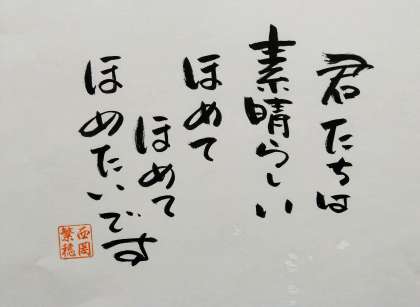 君たちは
素晴らしい
ほめて
ほめて
ほめたいです